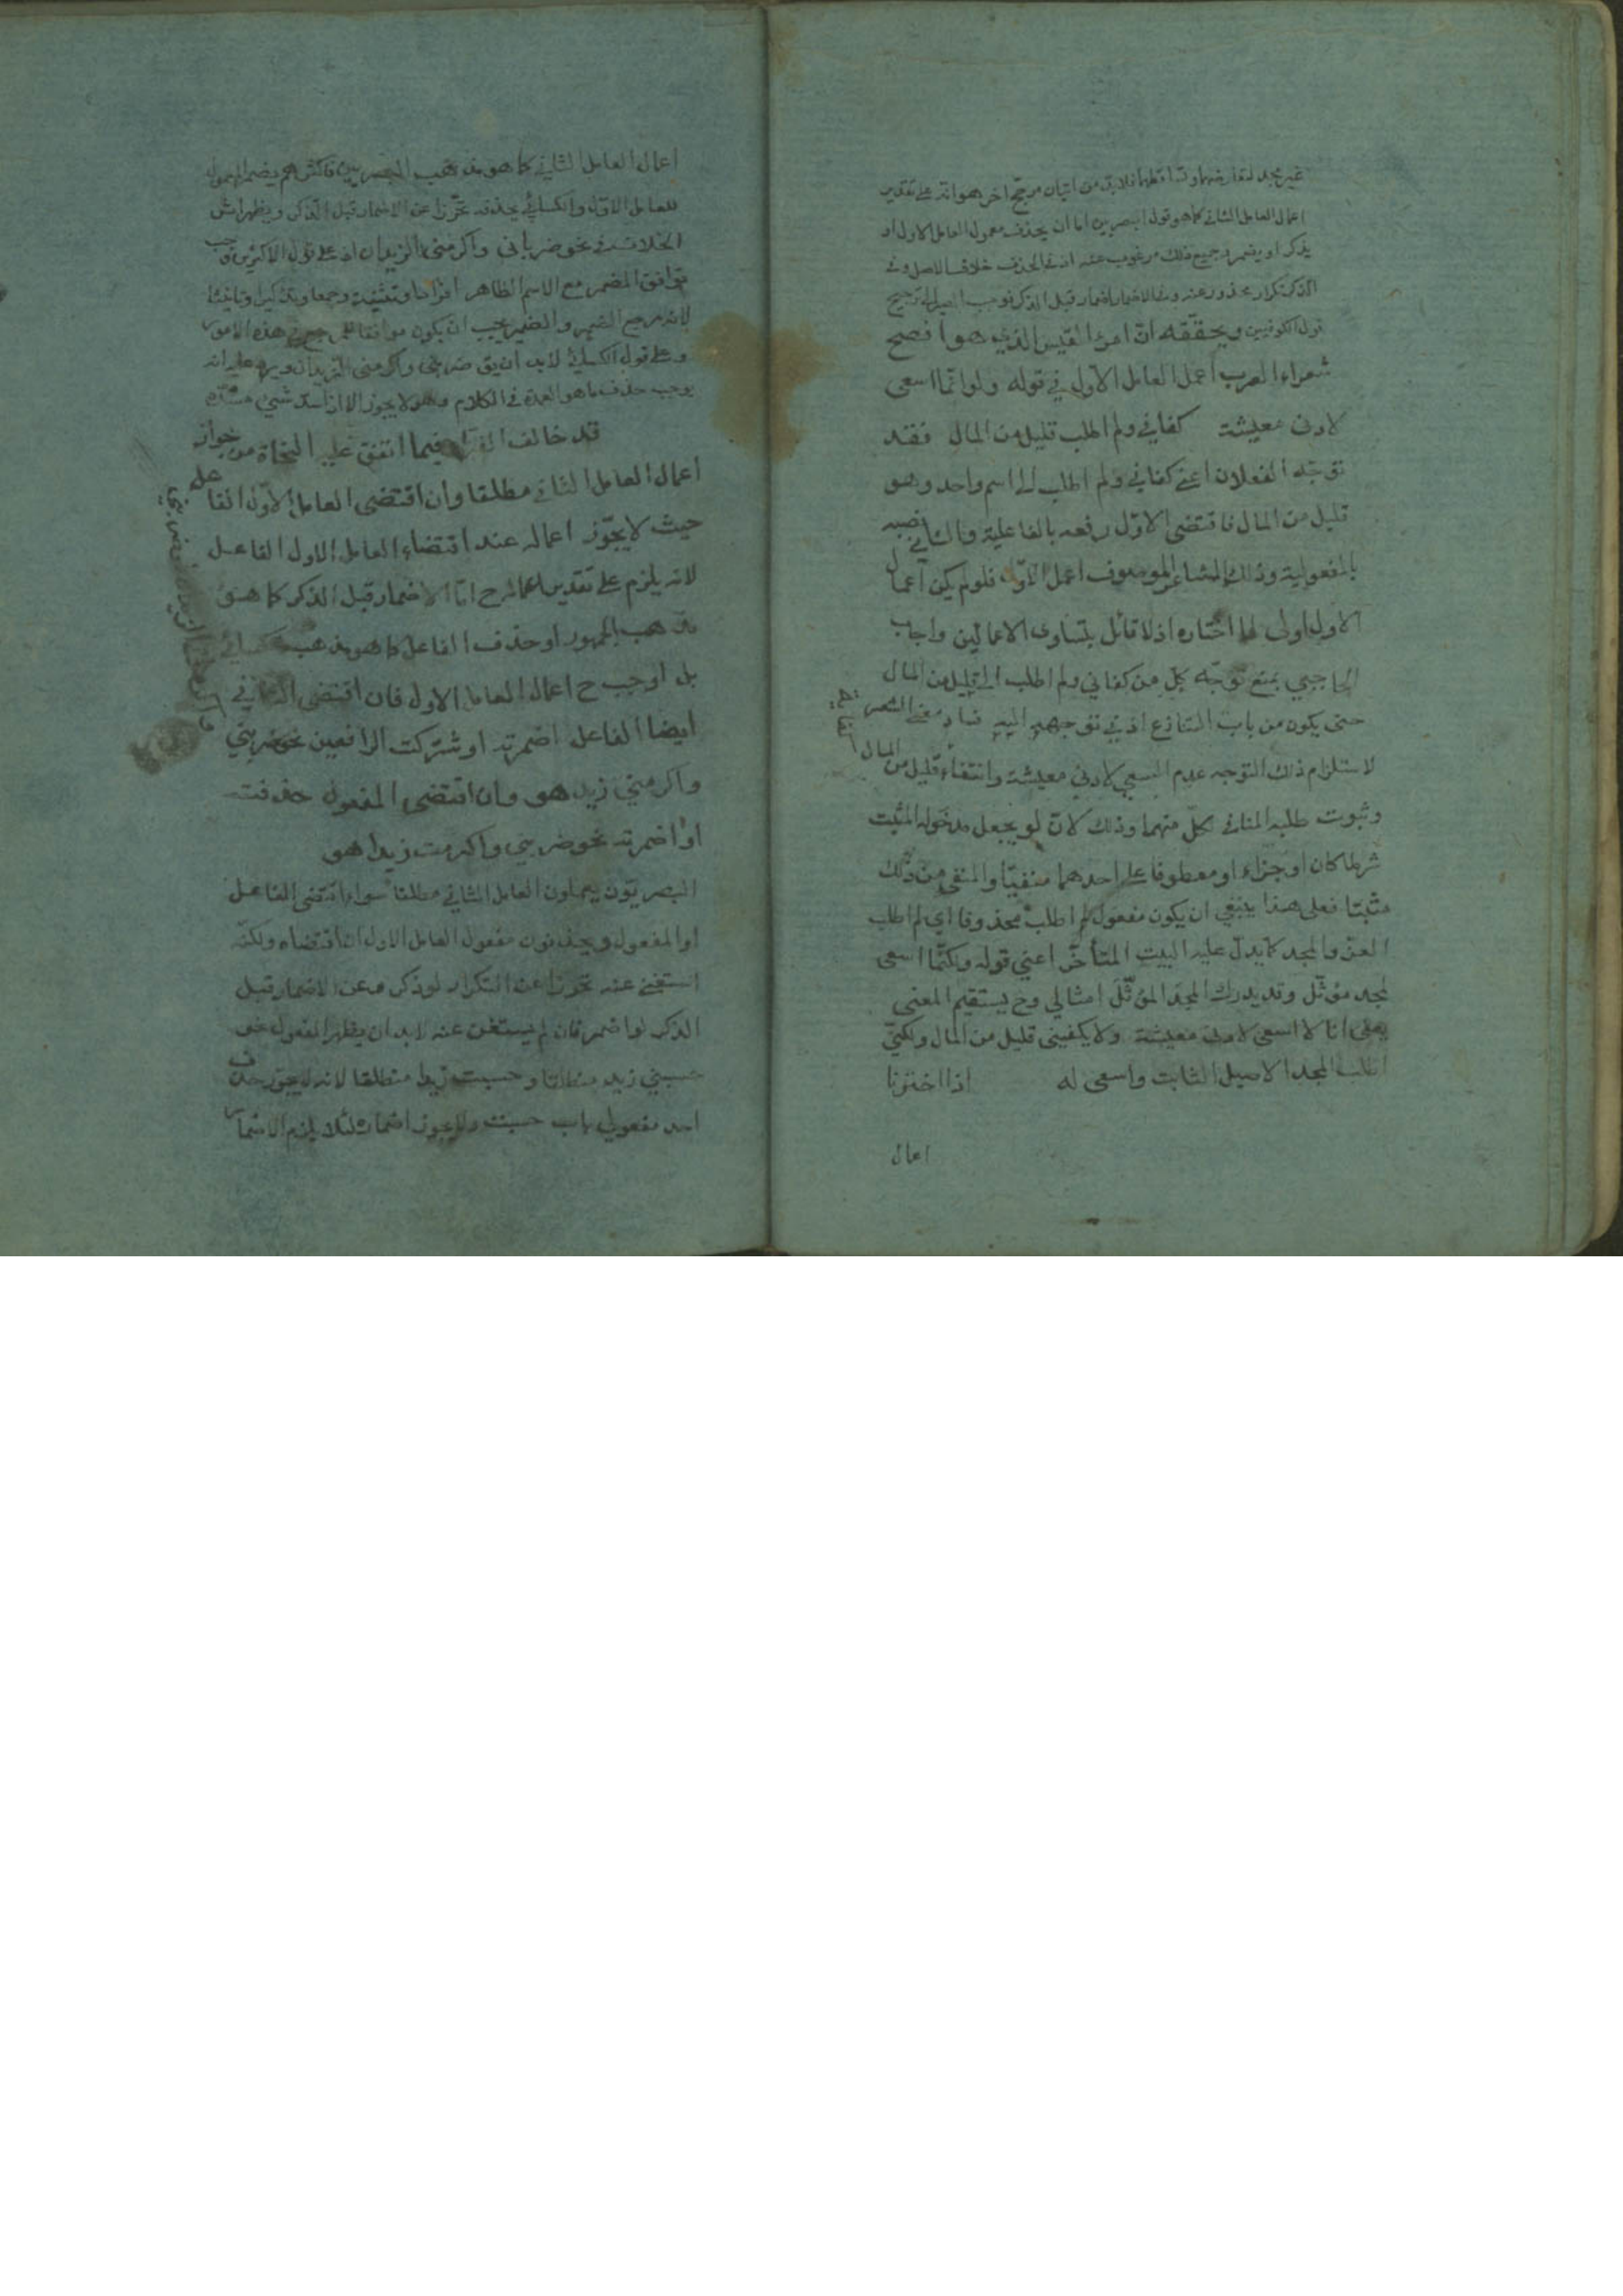 غير مجد لتعارضهما وتساقطهما فلابد من اتيان مرجح اخر هو انه على تقدير
اعمال العامل الثاني كما هو قول البصريين اما ان يحذف معمول العامل الاول او
يذكر او يضمر وجميع ذلك مرغوب عنه اذ في الحذف خلاف الاصل وفي
الذكر تكرار محذور عنه وفي الاضمار اضمار قبل الذكر فوجب المصير الى ترجيح
قول الكوفيين ويحققه ان امرئ القيس الذي هو افصح
شعراء العرب اعمل العامل الاول في قوله ولو انما اسعى
لادنى معيشة كفاني ولم اطلب قليل من المال فقد
توجه الفعلان اعني كفاني ولم اطلب الى اسم واحد وهو
قليل من المال فاقتضى الاول رفعه بالفاعلية والثاني نصبه
بالمفعولية وذلك الشاعر الموصوف اعمل الاول فلو لم يكن اعمال
الاول اولى لما اختاره اذ لا قائل بتساوى الاعمالين واجاب
الحاجبي بمنع توجه كل من كفاني ولم اطلب الى قليل من المال
حتى يكون من باب التنازع اذ في توجههما اليه فساد معنى الشعر
لاستلزام ذلك التوجه عدم السعي لادنى معيشة وانتفاء قليل من المال
وثبوت طلبه المنافي لكل منهما وذلك لان لو يجعل مدخوله المثبت
شرطا كان او جزاء او معطوفا على احدهما منفيا والمنفي من ذلك
مثبتا فعلى هذا ينبغي ان يكون مفعول لم اطلب محذوفا اي لم اطلب
العز والمجد كما يدل عليه البيت المتأخر اعني قوله ولكنما اسعى
لمجد مؤثل وقد يدرك المجد المؤثل امثالي وح يستقيم المعنى
يعني انا لا اسعى لادنى معيشة ولا يكفيني قليل من المال ولكني
اطلب المجد الاصيل الثابت واسعى له اذا اخترنا
اعمال
اعمال العامل الثاني كما هو مذهب البصريين فاكثرهم يضمر المعمول
للعامل الاول والكسائي يحذفه تحرزا عن الاضمار قبل الذكر ويظهر اثر
الخلاف في نحو ضرباني واكرمني الزيدان اذ على قول الاكثرين يجب
توافق المضمر مع الاسم الظاهر افرادا وتثنية وجمعا وتذكيرا وتانيثا
لانه مرجع الضمير والضمير يجب ان يكون موافقا للمرجع في هذه الامور
وعلى قول الكسائي لابد ان يق ضربني واكرمني الزيدان ويرد عليه انه
يوجب حذف ما هو العمدة في الكلام وهو لا يجوز الا اذا سد شيء مسده
قد خالف الفراء فيما اتفق عليه النحاة من جواز
اعمال العامل الثاني مطلقا وان اقتضى العامل الاول الفاعل
حيث لا يجوز اعماله عند اقتضاء العامل الاول الفاعل
لانه يلزم على تقدير اعماله ح اما الاضمار قبل الذكر كما هو
مذهب الجمهور او حذف الفاعل كما هو مذهب الكسائي
بل اوجب ح اعمال العامل الاول فان اقتضى الثاني
ايضا الفاعل اضمرته او شركت الرافعين نحو ضربني
واكرمني زيد هو وان اقتضى المفعول حذفت
او اضمرته نحو ضربني واكرمت زيدا هو
البصريون يعملون العامل الثاني مطلقا سواء اقتضى الفاعل
او المفعول ويحذفون مفعول العامل الاول ان اقتضاه ولكنه
استغنى عنه تحرزا عن التكرار لو ذكر وعن الاضمار قبل
الذكر لو اضمر فان لم يستغن عنه لابد ان يظهر المفعول نحو
حسبني زيد منطلقا وحسبت زيدا منطلقا لانه لا يجوز حذف
احد مفعولي باب حسبت ولا يجوز اضماره لئلا يلزم الاضمار